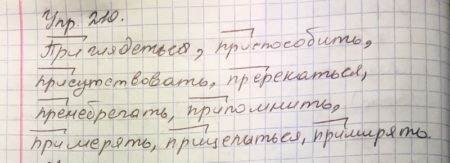 Упр. 210.
Приглядеться, приспособить,
присутствовать, пререкаться,
пренебрегать, припомнить,
примерять, прицепиться, примирять.